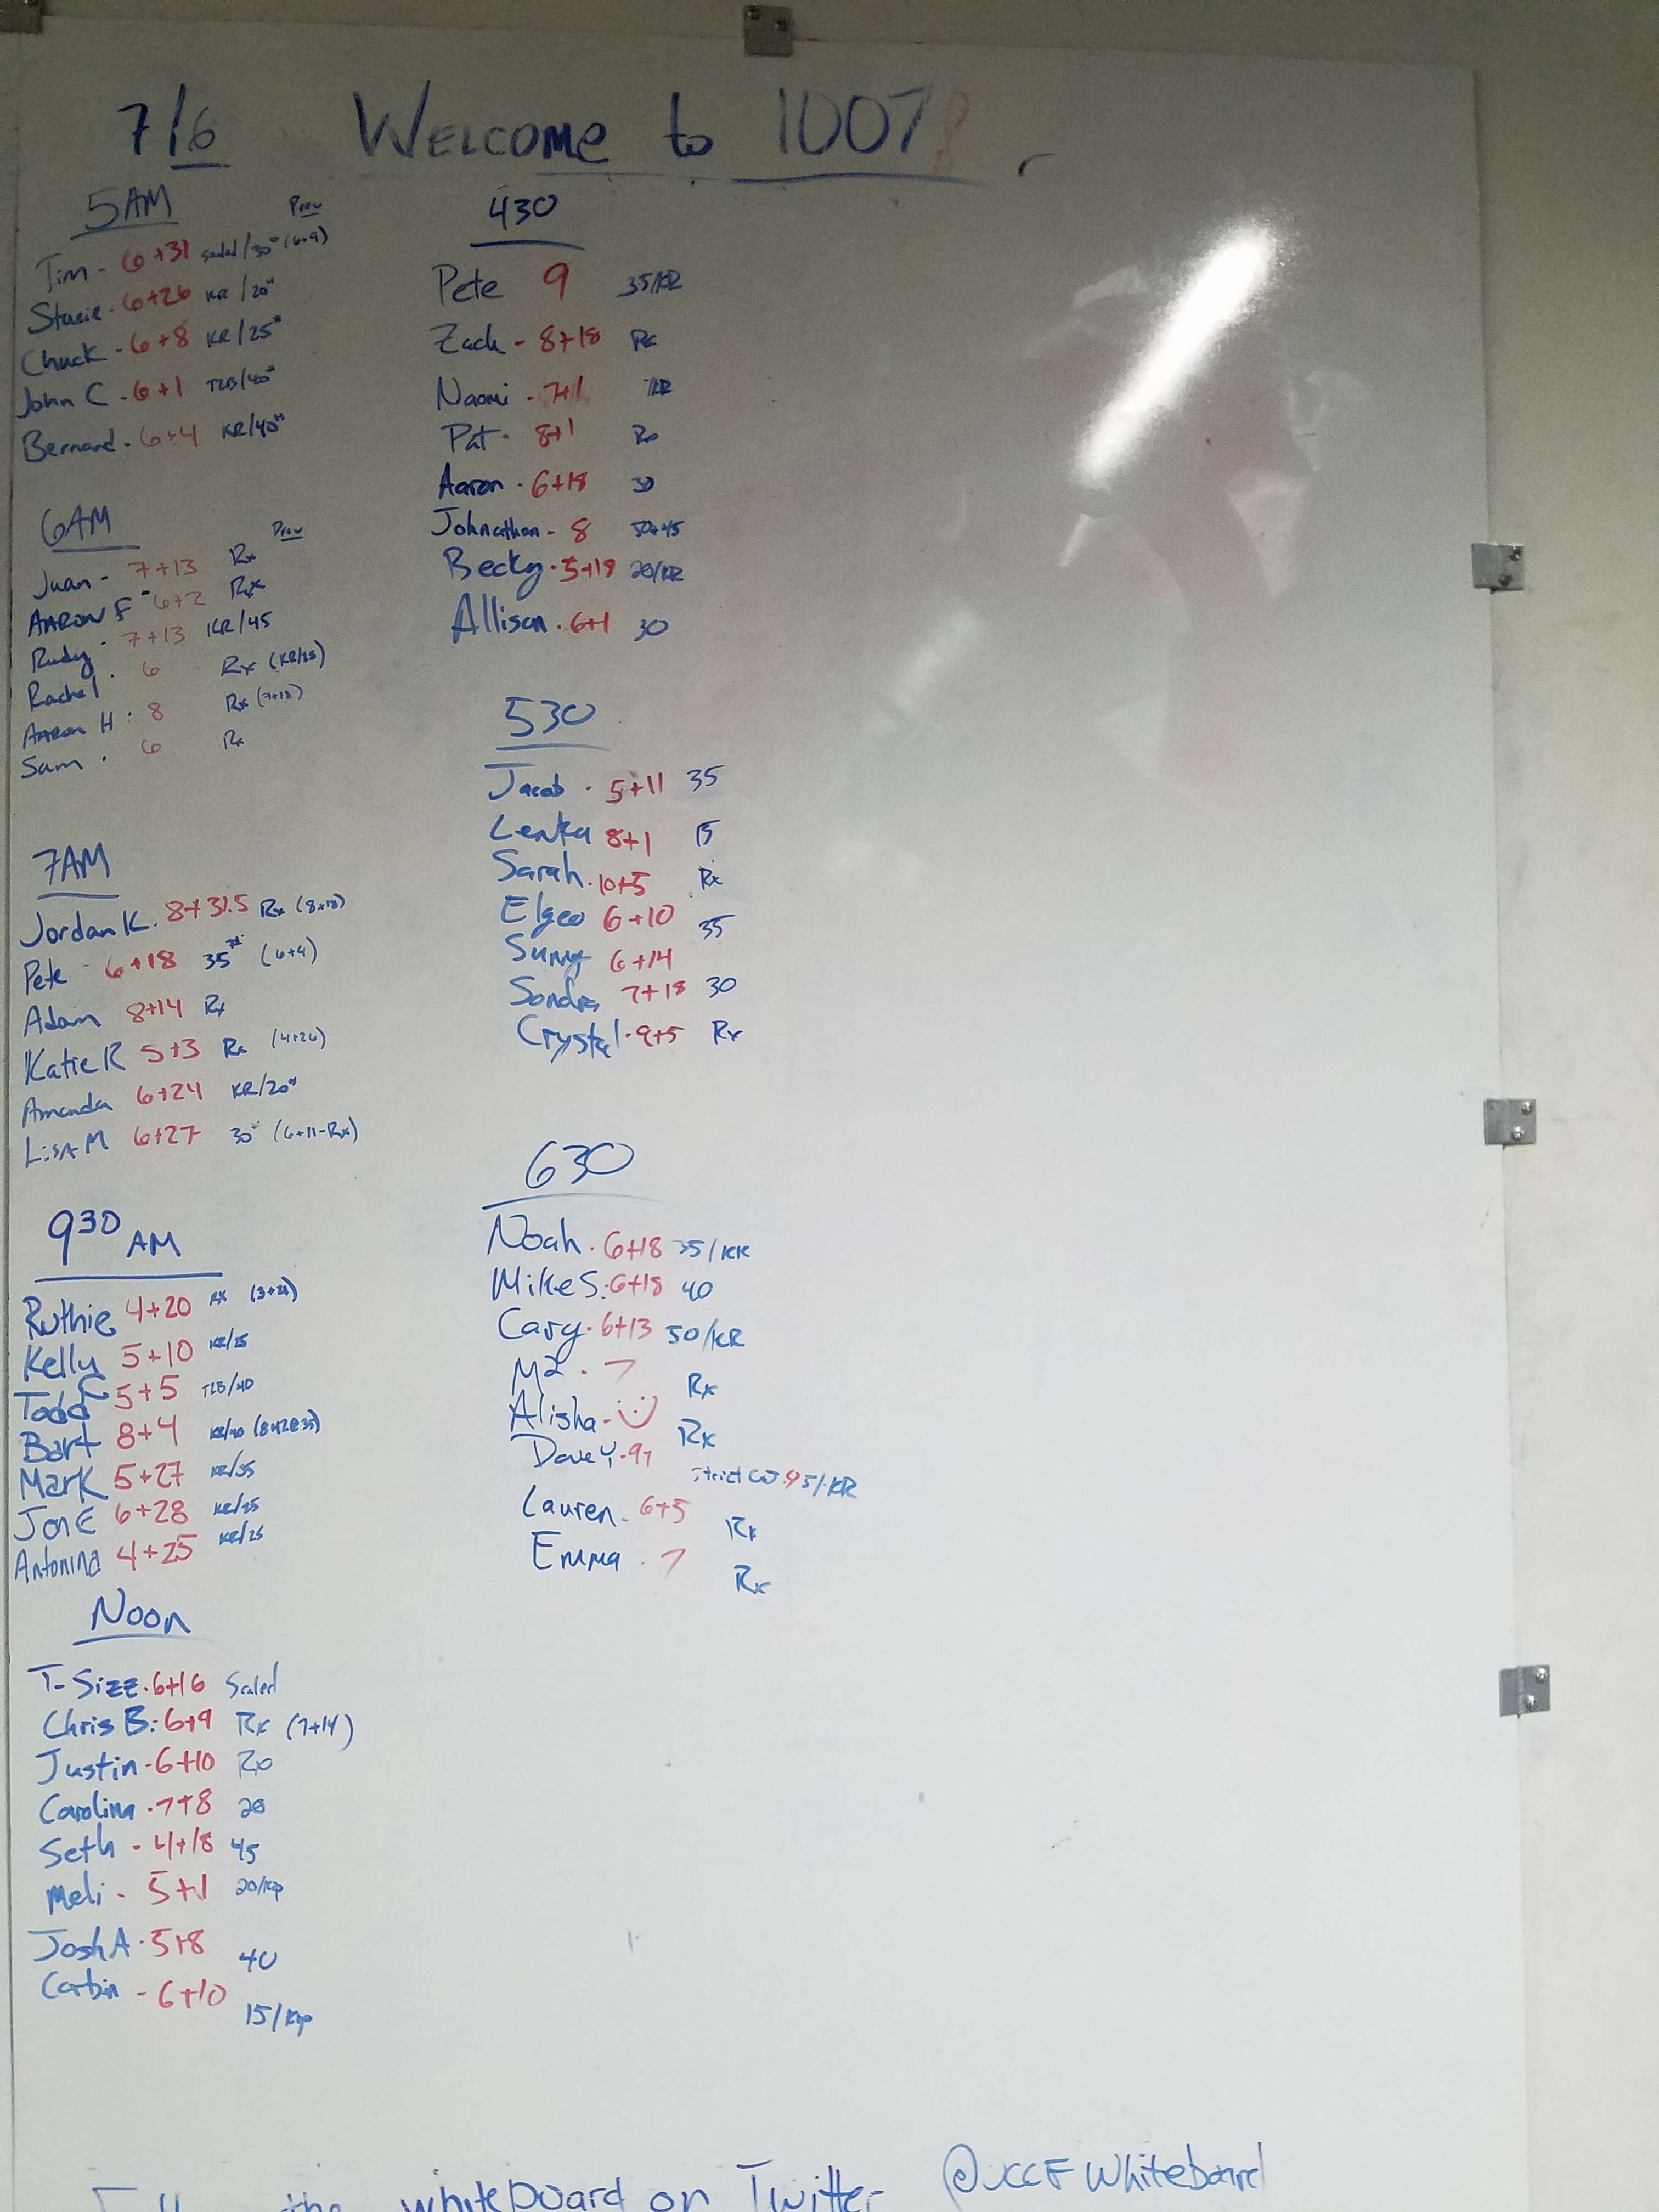 7/6 Welcome to 1007
5AM Prev
Tim - 6+31 scaled/30# (6+9)
Stacie - 6+26 KR/20#
Chuck - 6+8 KR/25#
John C - 6+1 TLB/40#
Bernard - 6+4 KR/40#
6AM Prev
Juan - 7+13 Rx
Aaron F - 6+2 Rx
Rudy - 7+13 KR/45
Rachel . 6 Rx (KR/25)
Aaron H : 8 Rx (7+18)
Sam . 6 Rx
7AM
Jordan K. 8+31.5 Rx (8+18)
Pete - 6+18 35# (6+4)
Adam 8+14 Rx
Katie R 5+3 Rx (4+26)
Amanda 6+24 KR/20#
Lisa M 6+27 30# (6+11-Rx)
930 AM
Ruthie 4+20 Rx
Kelly 5+10 KR/25
Todd 5+5 TLB/40
Bart 8+4
Mark 5+27 KR/35
Jon E 6+28 KR/25
Antonina 4+25 KR/25
Noon
T-Size. 6+16 Scaled
Chris B: 6+9 Rx (7+14)
Justin - 6+10 Rx
Carolina . 7+8 20
Seth - 4+18 45
Meli - 5+1 20/Kip
Josh A . 5+8 40
Corbin - 6+10 15/Kip
430
Pete 9 35/KR
Zach - 8+18 Rx
Naomi - 7+1 KR
Pat - 8+1 Rx
Aaron - 6+18 30
Johnathan - 8
Becky . 5+18 20/KR
Allison . 6+1 30
530
Jacob . 5+11 35
Lenka 8+1 15
Sarah . 10+5 Rx
6+10 35
6+14
Sondra 7+18 30
Crystal . 9+5 Rx
630
Noah . 6+18 35/KR
Mike S: 6+18 40
Cary . 6+13 50/KR
M2 . 7 Rx
Alisha - Rx
Dave Y. Strict 95/KR
Lauren . 6+5 Rx
Emma . 7 Rx
the whiteboard on Twitter @JCCFWhiteboard